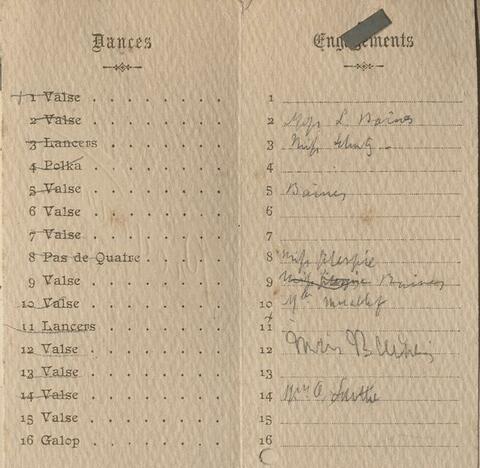 Dances
1 Valse
2 Valse
3 Lancers
4 Polka
5 Valse
6 Valse
7 Valse
8 Pas de Quatre
9 Valse
10 Valse
11 Lancers
12 Valse
13 Valse
14 Valse
15 Valse
16 Galop
Engagements
1
2 Miss L Baines
3 Miss
4
5 Baines
6
7
8 Miss Gillespie
9 Miss Baines
10
11
12 Miss
13
14
15
16